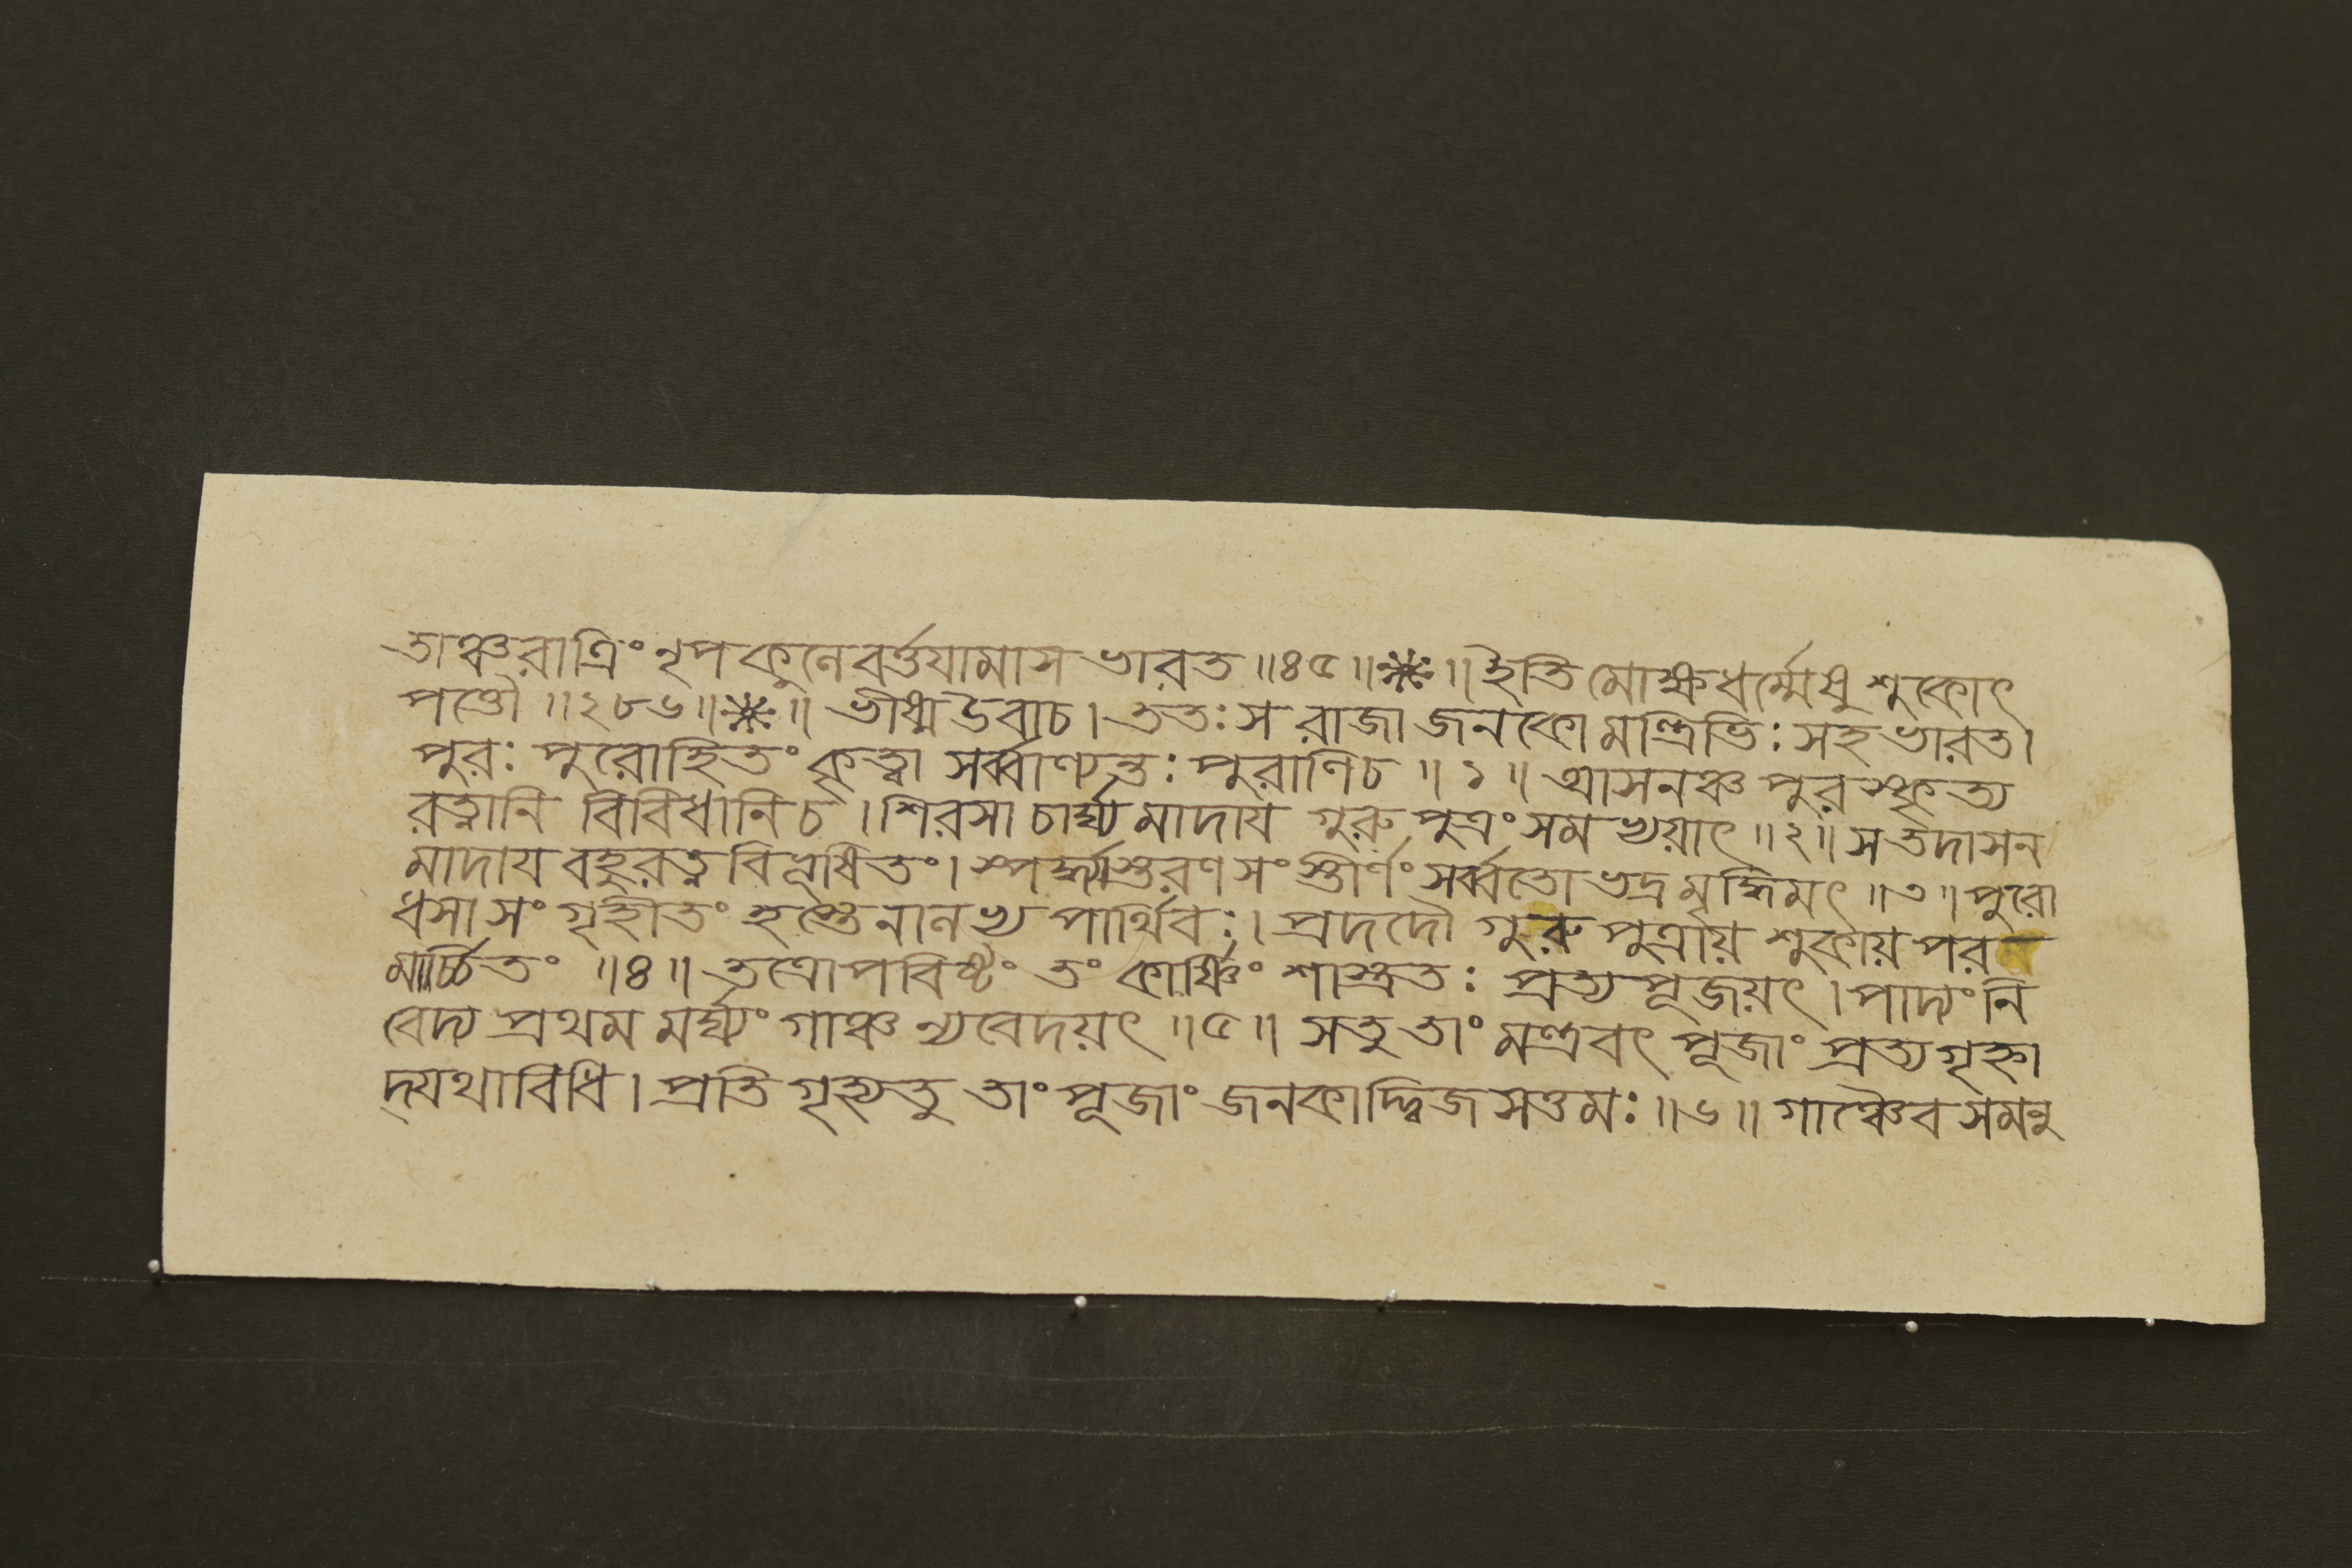 তাঞ্চরাত্রিং নৃপকুলেবর্ত্তযামাস ভারত ॥৪৫॥❋॥ ইতি মোক্ষধর্ম্মেষু শুকোৎ
পত্তৌ ॥২৮৬॥❋॥ ভীষ্ম উবাচ । ততঃ স রাজা জনকো মন্ত্রিভিঃ সহ ভারত ।
পুরঃ পুরোহিতং কৃত্বা সর্ব্বাণ্যন্তঃ পুরাণিচ ॥১॥ আসনঞ্চ পুরস্কৃত্য
রত্নানি বিবিধানিচ । শিরসা চার্ঘ্য মাদায় গুরু পুত্রং সমভ্যয়াৎ ॥২॥ স তদাসন
মাদায বহুরত্ন বিভূষিতং । স্পর্দ্ধ্যাস্তরণ সংস্তীর্ণং সর্ব্বতো ভদ্রমৃদ্ধিমৎ ॥৩॥ পুরো
ধসা সংগৃহীতং হস্তেনালভ্য পার্থিবঃ । প্রদদৌ গুরু পুত্রায় শুকায় পর
মার্চ্চিতং ॥৪॥ তত্রোপবিষ্টং তং কার্ষ্ণিং শাস্ত্রতঃ প্রত্য পূজয়ৎ । পাদ্যং নি
বেদ্য প্রথম মর্ঘ্যং গাঞ্চ ন্যবেদয়ৎ ॥৫॥ সতু তাং মন্ত্রবৎ পূজাং প্রত্যগৃহ্ণা
দ্যথাবিধি । প্রতি গৃহ্যতু তাং পূজাং জনকাদ্দ্বিজ সত্তমঃ ॥৬॥ গাঞ্চৈব সমনু